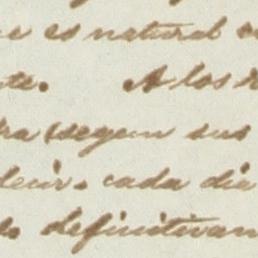 e es natural
te. A los
ra (segun sus
decir, cada dia
definitivam